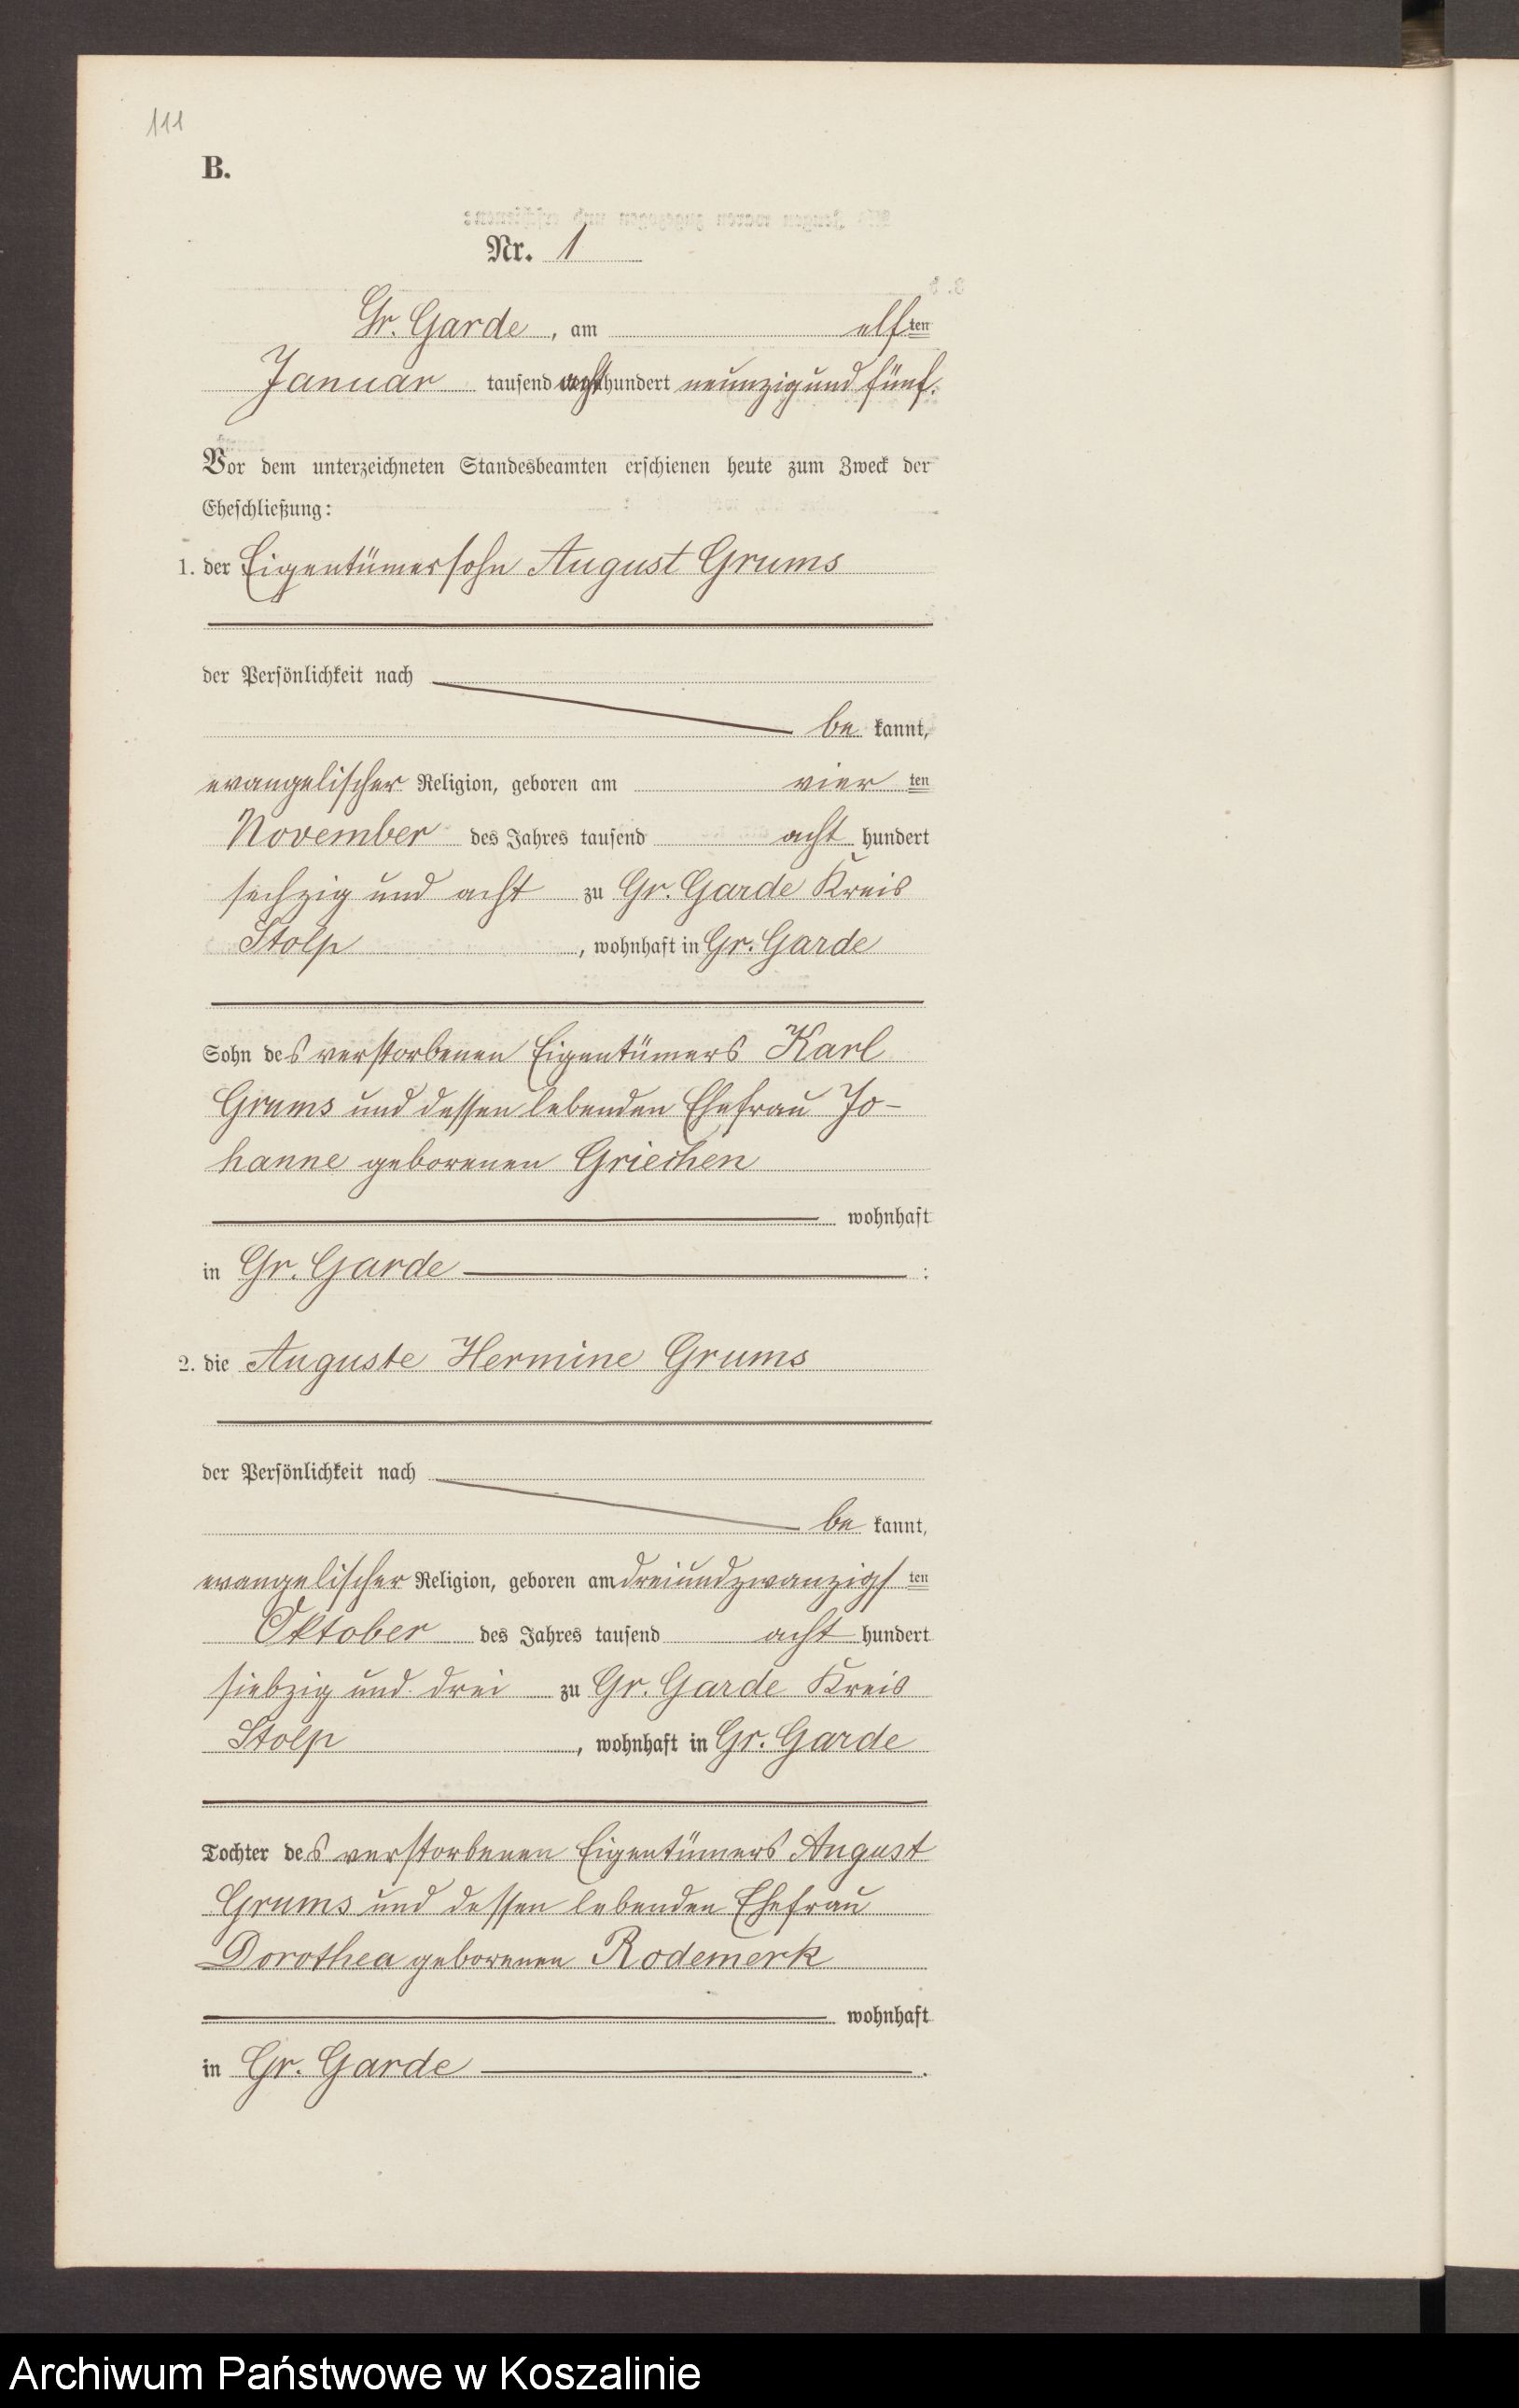 111
B.
Nr. 1
Gr. Garde, am elften
Januar tausend achthundert neunzig und fünf.
Vor dem unterzeichneten Standesbeamten erschienen heute zum Zweck der
Eheschließung:
1. der Eigentümersohn August Grums
der Persönlichkeit nach
be kannt,
evangelischer Religion, geboren am vier ten
November des Jahres tausend acht hundert
sechzig und acht zu Gr. Garde Kreis
Stolp, wohnhaft in Gr. Garde
Sohn des verstorbenen Eigentümers Karl
Grums und dessen lebenden Ehefrau Jo-
hanne geborenen Griechen
wohnhaft
in Gr. Garde :
2. die Auguste Hermine Grums
der Persönlichkeit nach
be kannt,
evangelischer Religion, geboren am dreiundzwanzigs ten
Oktober des Jahres tausend acht hundert
siebzig und drei zu Gr. Garde Kreis
Stolp, wohnhaft in Gr. Garde
Tochter des verstorbenen Eigentümers August
Grums und dessen lebenden Ehefrau
Dorothea geborenen Rodemerk
wohnhaft
in Gr. Garde .
Archiwum Państwowe w Koszalinie